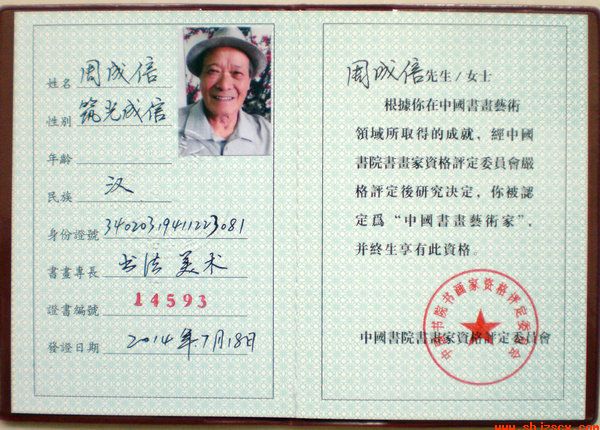 姓名 周成信
性別 筑光成信
年齡
民族 汉
身份證號 34020319411223081
書畫專長 书法 美术
證書編號 14593
發證日期 2014年7月18日
周成信先生/女士
根據你在中國書畫藝術
領域所取得的成就，經中國
書院書畫家資格評定委員會嚴
格評定後研究决定，你被認
定爲“中國書畫藝術家”，
并終生享有此資格。
中國書院書畫家資格評定委員會
中国书院书画家资格评定委员会